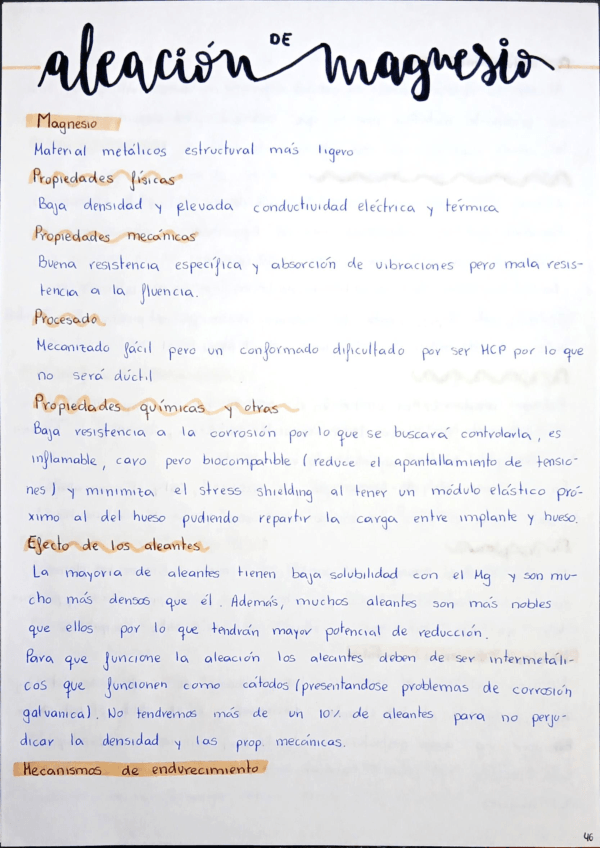 aleación DE magnesio
Magnesio
Material metálicos estructural más ligero
Propiedades físicas
Baja densidad y elevada conductividad eléctrica y térmica
Propiedades mecánicas
Buena resistencia específica y absorción de vibraciones pero mala resis-
tencia a la fluencia.
Procesado
Mecanizado fácil pero un conformado dificultado por ser HCP por lo que
no será dúctil
Propiedades químicas y otras
Baja resistencia a la corrosión por lo que se buscará controlarla, es
inflamable, caro pero biocompatible (reduce el apantallamiento de tensio-
nes) y minimiza el stress shielding al tener un módulo elástico pró-
ximo al del hueso pudiendo repartir la carga entre implante y hueso.
Efecto de los aleantes
La mayoria de aleantes tienen baja solubilidad con el Mg y son mu-
cho más densos que él. Además, muchos aleantes son más nobles
que ellos por lo que tendrán mayor potencial de reducción.
Para que funcione la aleación los aleantes deben de ser intermetáli-
cos que funcionen como cátodos (presentandose problemas de corrosión
galvanica). No tendremos más de un 10% de aleantes para no perju-
dicar la densidad y las prop. mecánicas.
Mecanismos de endurecimiento
46